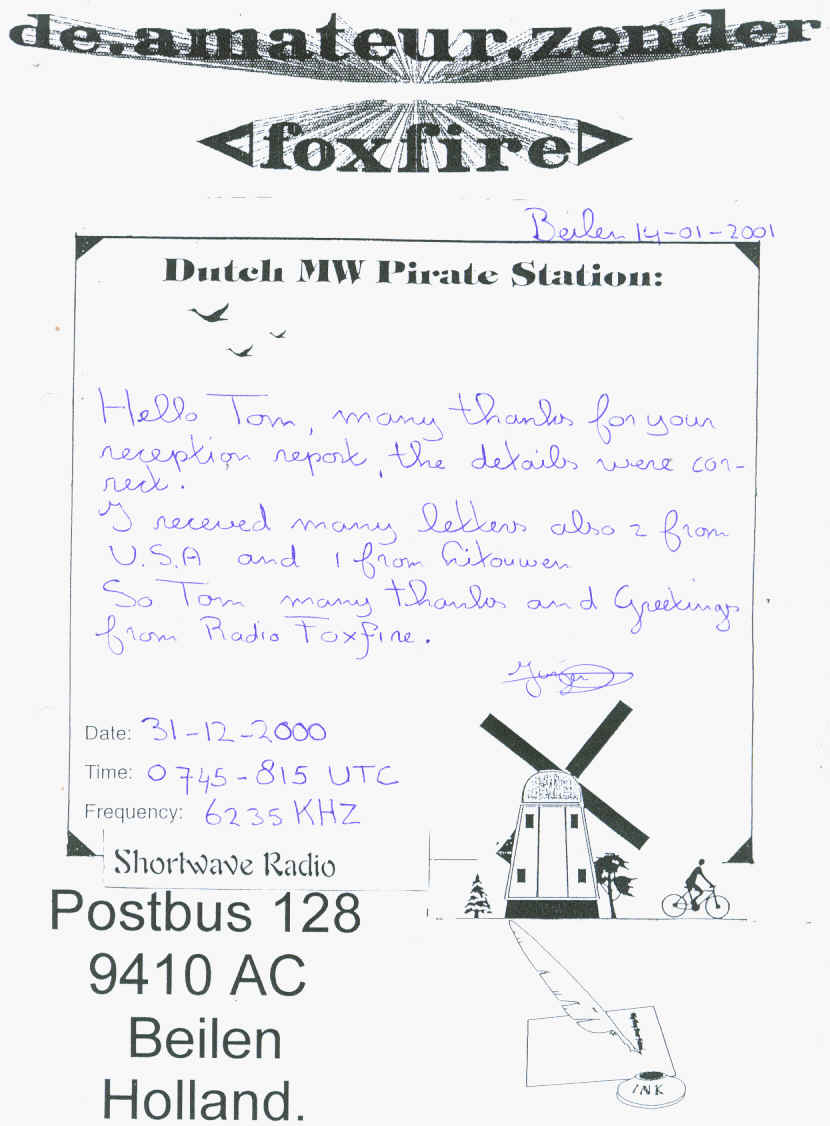 de.amateur.zender
foxfire
Beilen 14-01-2001
Dutch MW Pirate Station:
Hello Tom, many thanks for your
reception report, the details were cor-
rect.
I receved many letters also 2 from
U.S.A and 1 from Litouwen
So Tom many thanks and Greetings
from Radio Foxfire.
Date: 31-12-2000
Time: 0745-815 UTC
Frequency: 6235 KHZ
Shortwave Radio
Postbus 128
9410 AC
Beilen
Holland.
INK